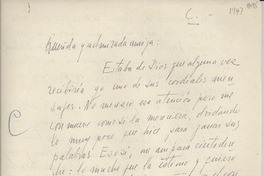 C.-
1947
Querida y admirada amiga:
Estaba de Dios que alguna vez
recibiría yo uno de sus cordiales men
sajes. No merezco su atención pero me
con mueve como se la merezca, olvidando
lo muy poco que hice para ganar sus
palabras. Escri, mi amparo
le: lo mucho que la estimo y quiero
C